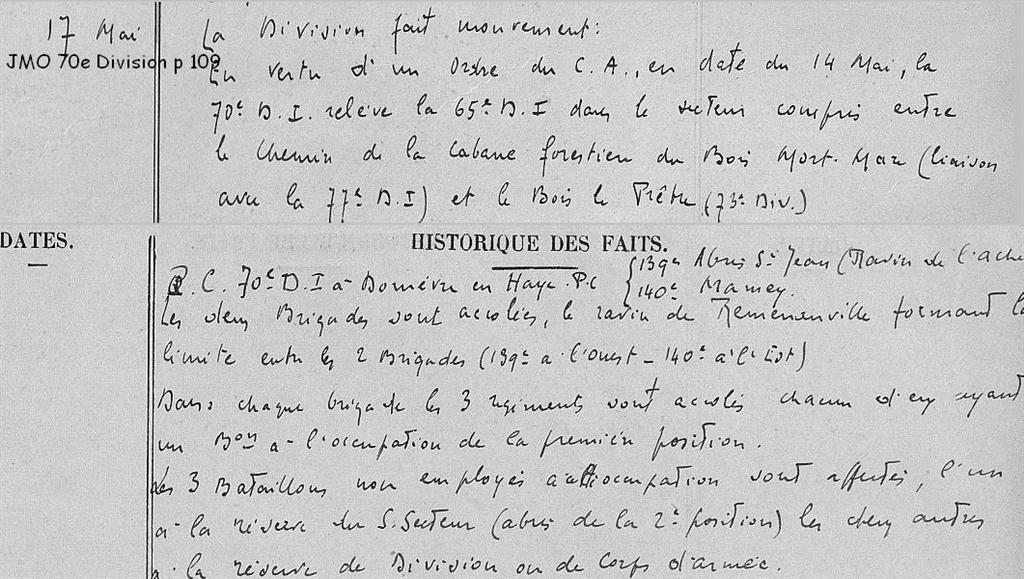 17 Mai La Division fait mouvement :
JMO 70e Division p 109
En vertu d'un Ordre du C.A., en date du 14 Mai, la
70e D.I. relève la 65e D.I dans le secteur compris entre
le chemin de la cabane forestière du Bois Mort-Mare (liaison
avec la 77e D.I) et le Bois le Prêtre (73e Div.)
DATES. HISTORIQUE DES FAITS.
P.C. 70e D.I à Domèvre en Haye. P.C { 139e Abris St Jean (Ravin de l'ache
140e Mamey.
Les deux Brigades sont accolées, le ravin de Remenauville formant la
limite entre les 2 Brigades (139e à l'ouest - 140e à l'Est)
Dans chaque brigade les 3 régiments sont accolés chacun d'eux ayant
un Bon à l'occupation de la première position.
Les 3 Bataillons non employés à l'occupation sont affectés, l'un
à la réserve du S. Secteur (abris de la 2e position) les deux autres
à la réserve de Division ou de Corps d'armée.